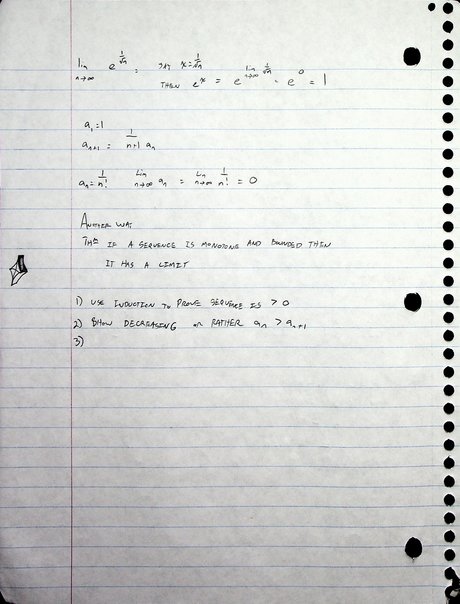 lim n→∞ e^(1/√n) : SAY x = 1/√n
THEN e^x = e^(lim n→∞ 1/√n) = e^0 = 1
a₁ = 1
aₙ₊₁ = 1/(n+1) aₙ
aₙ = 1/n! Lim n→∞ aₙ = Lim n→∞ 1/n! = 0
ANOTHER WAY
THM IF A SEQUENCE IS MONOTONE AND BOUNDED THEN
IT HAS A LIMIT
1) USE INDUCTION TO PROVE SEQUENCE IS > 0
2) SHOW DECREASING OR RATHER aₙ > aₙ₊₁
3)